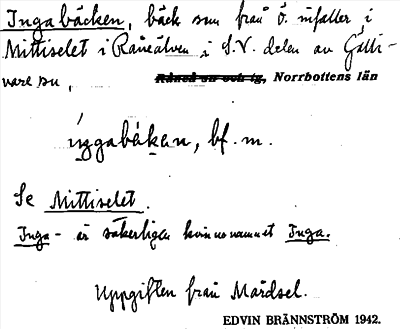 Ingabäcken, bäck som från Ö. infaller i
Mittiselet i Råneälven i S.V. delen av Gälli-
vare sn, Råneå sn och tg, Norrbottens län
íŋgabǻkan, bf. m.
Se Mittiselet.
Inga- är säkerligen kvinnonamnet Inga.
Uppgiften från Mårdsel.
EDVIN BRÄNNSTRÖM 1942.